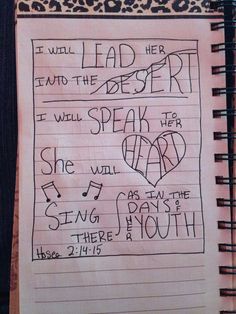 I WILL LEAD HER
INTO THE DESERT
I WILL SPEAK TO HER
She WILL HEART
SING THERE AS IN THE DAYS OF HER YOUTH
Hosea 2:14-15